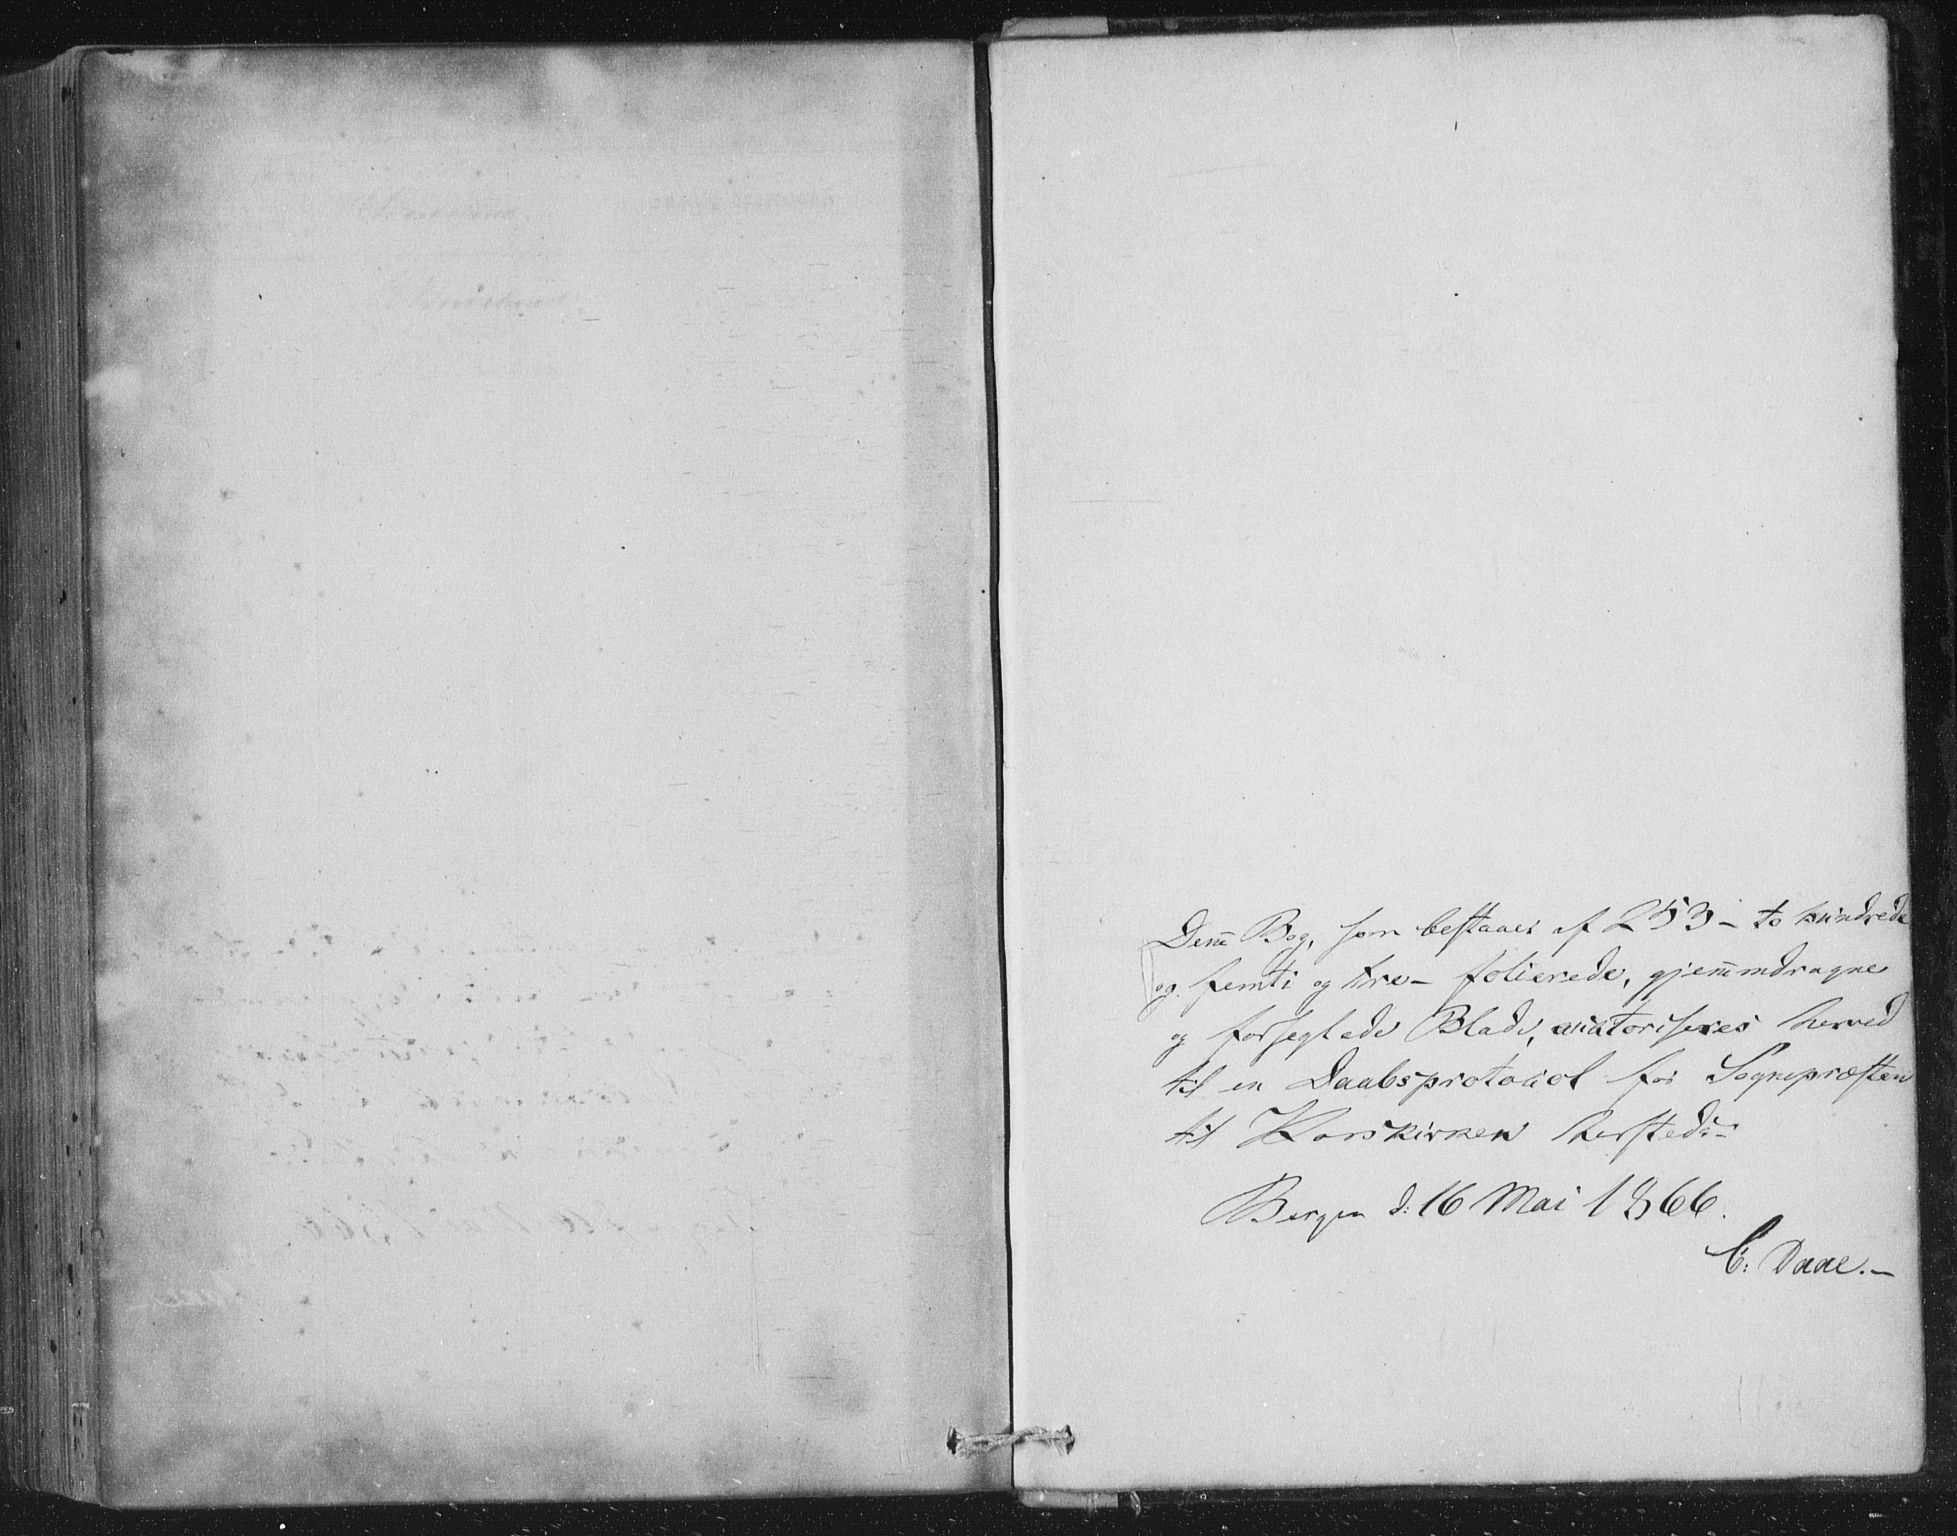 Denne Bog, som bestaaer af 253 – to hundrede
og femti og tre – folierede, gjennemdragne
og forseglede Blade, auctoriseres herved
til en Daabsprotocol for Sognepræsten
til Korskirken hersteds.
Bergen d: 16 Mai 1866.
C: Daae. –